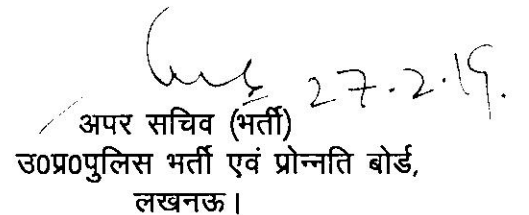 27.2.19.
अपर सचिव (भर्ती)
उ0प्र0पुलिस भर्ती एवं प्रोन्नति बोर्ड,
लखनऊ।